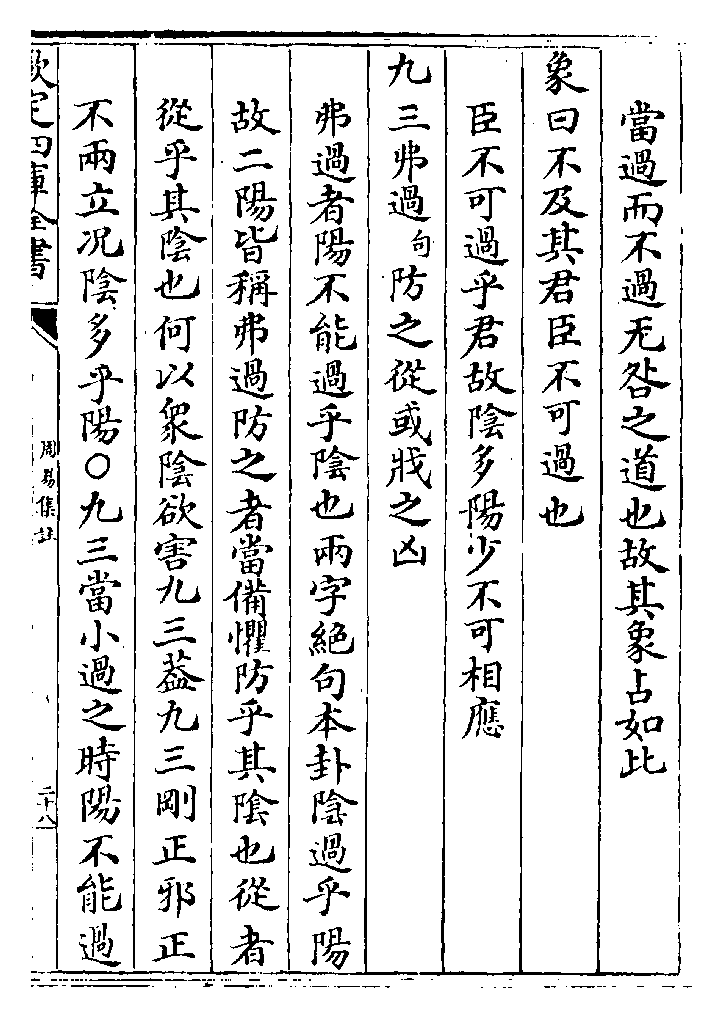 當過而不過无咎之道也故其象占如此
象曰不及其君臣不可過也
臣不可過乎君故陰多陽少不可相應
九三弗過句防之從或戕之凶
弗過者陽不能過乎陰也兩字絕句本卦陰過乎陽
故二陽皆稱弗過防之者當備懼防乎其陰也從者
從乎其陰也何以衆陰欲害九三葢九三剛正邪正
不兩立况陰多乎陽〇九三當小過之時陽不能過
欽定四庫全書
周易集註
二十八